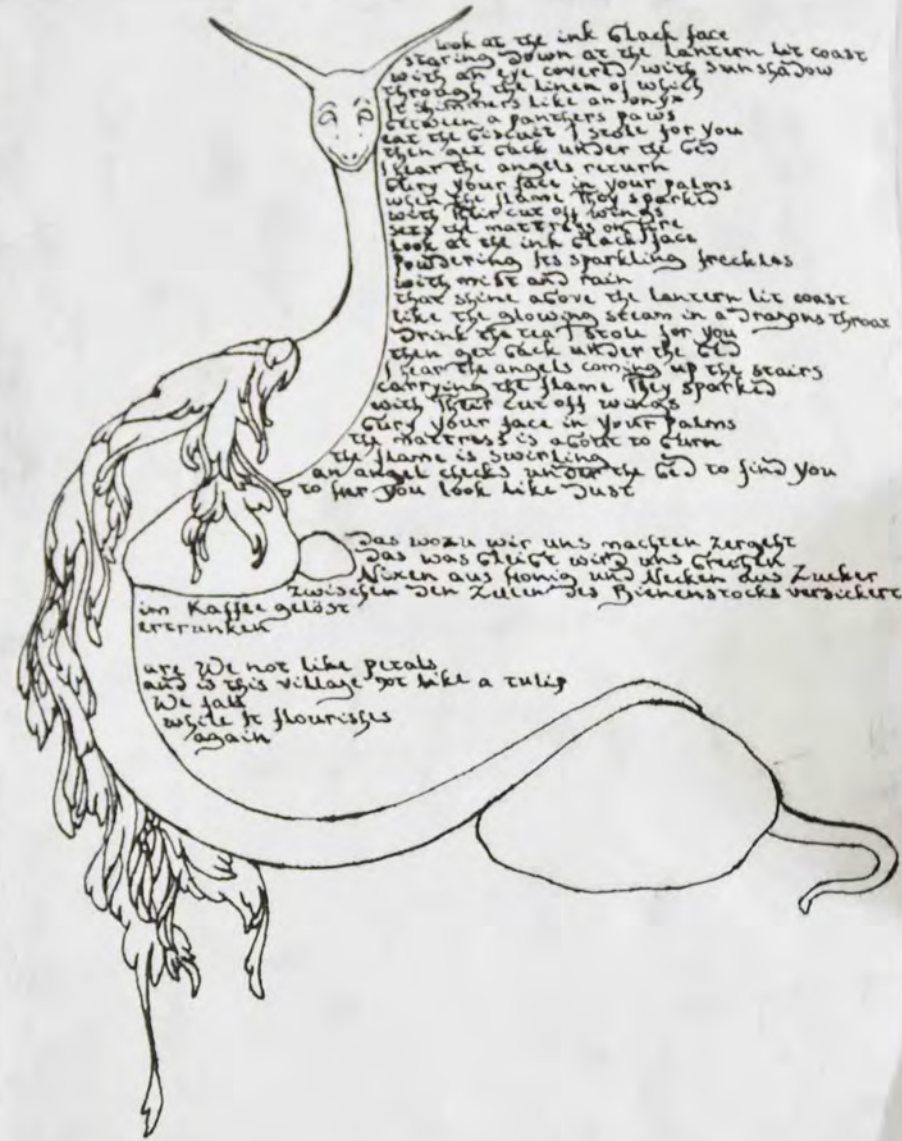 look at the ink black face
staring down at the lantern lit coast
with an eye covered with sunshadow
through the linen of which
It shimmers like an onyx
between a panthers paws
eat the biscuit I stole for you
then get back under the bed
I hear the angels return
bury your face in your palms
when the flame They sparked
with Their cut off wings
sets the mattress on fire
look at the ink black face
powdering Its sparkling freckles
with mist and rain
that shine above the lantern lit coast
like the glowing steam in a dragons throat
Drink the tea I stole for you
then get back under the bed
I hear the angels coming up the stairs
carrying the flame They sparked
with Their cut off wings
bury your face in your palms
the mattress is about to burn
the flame is swirling
an angel checks under the bed to find you
to her you look like dust
Das wozu wir uns machten zergeht
Das was bleibt wird uns brechen
Nixen aus Honig und Necken aus Zucker
zwischen den Zellen des Bienenstocks versickert
im Kaffee gelöst
ertrunken
are We not like petals
and is this village not like a tulip
We fall
while It flourishes
again